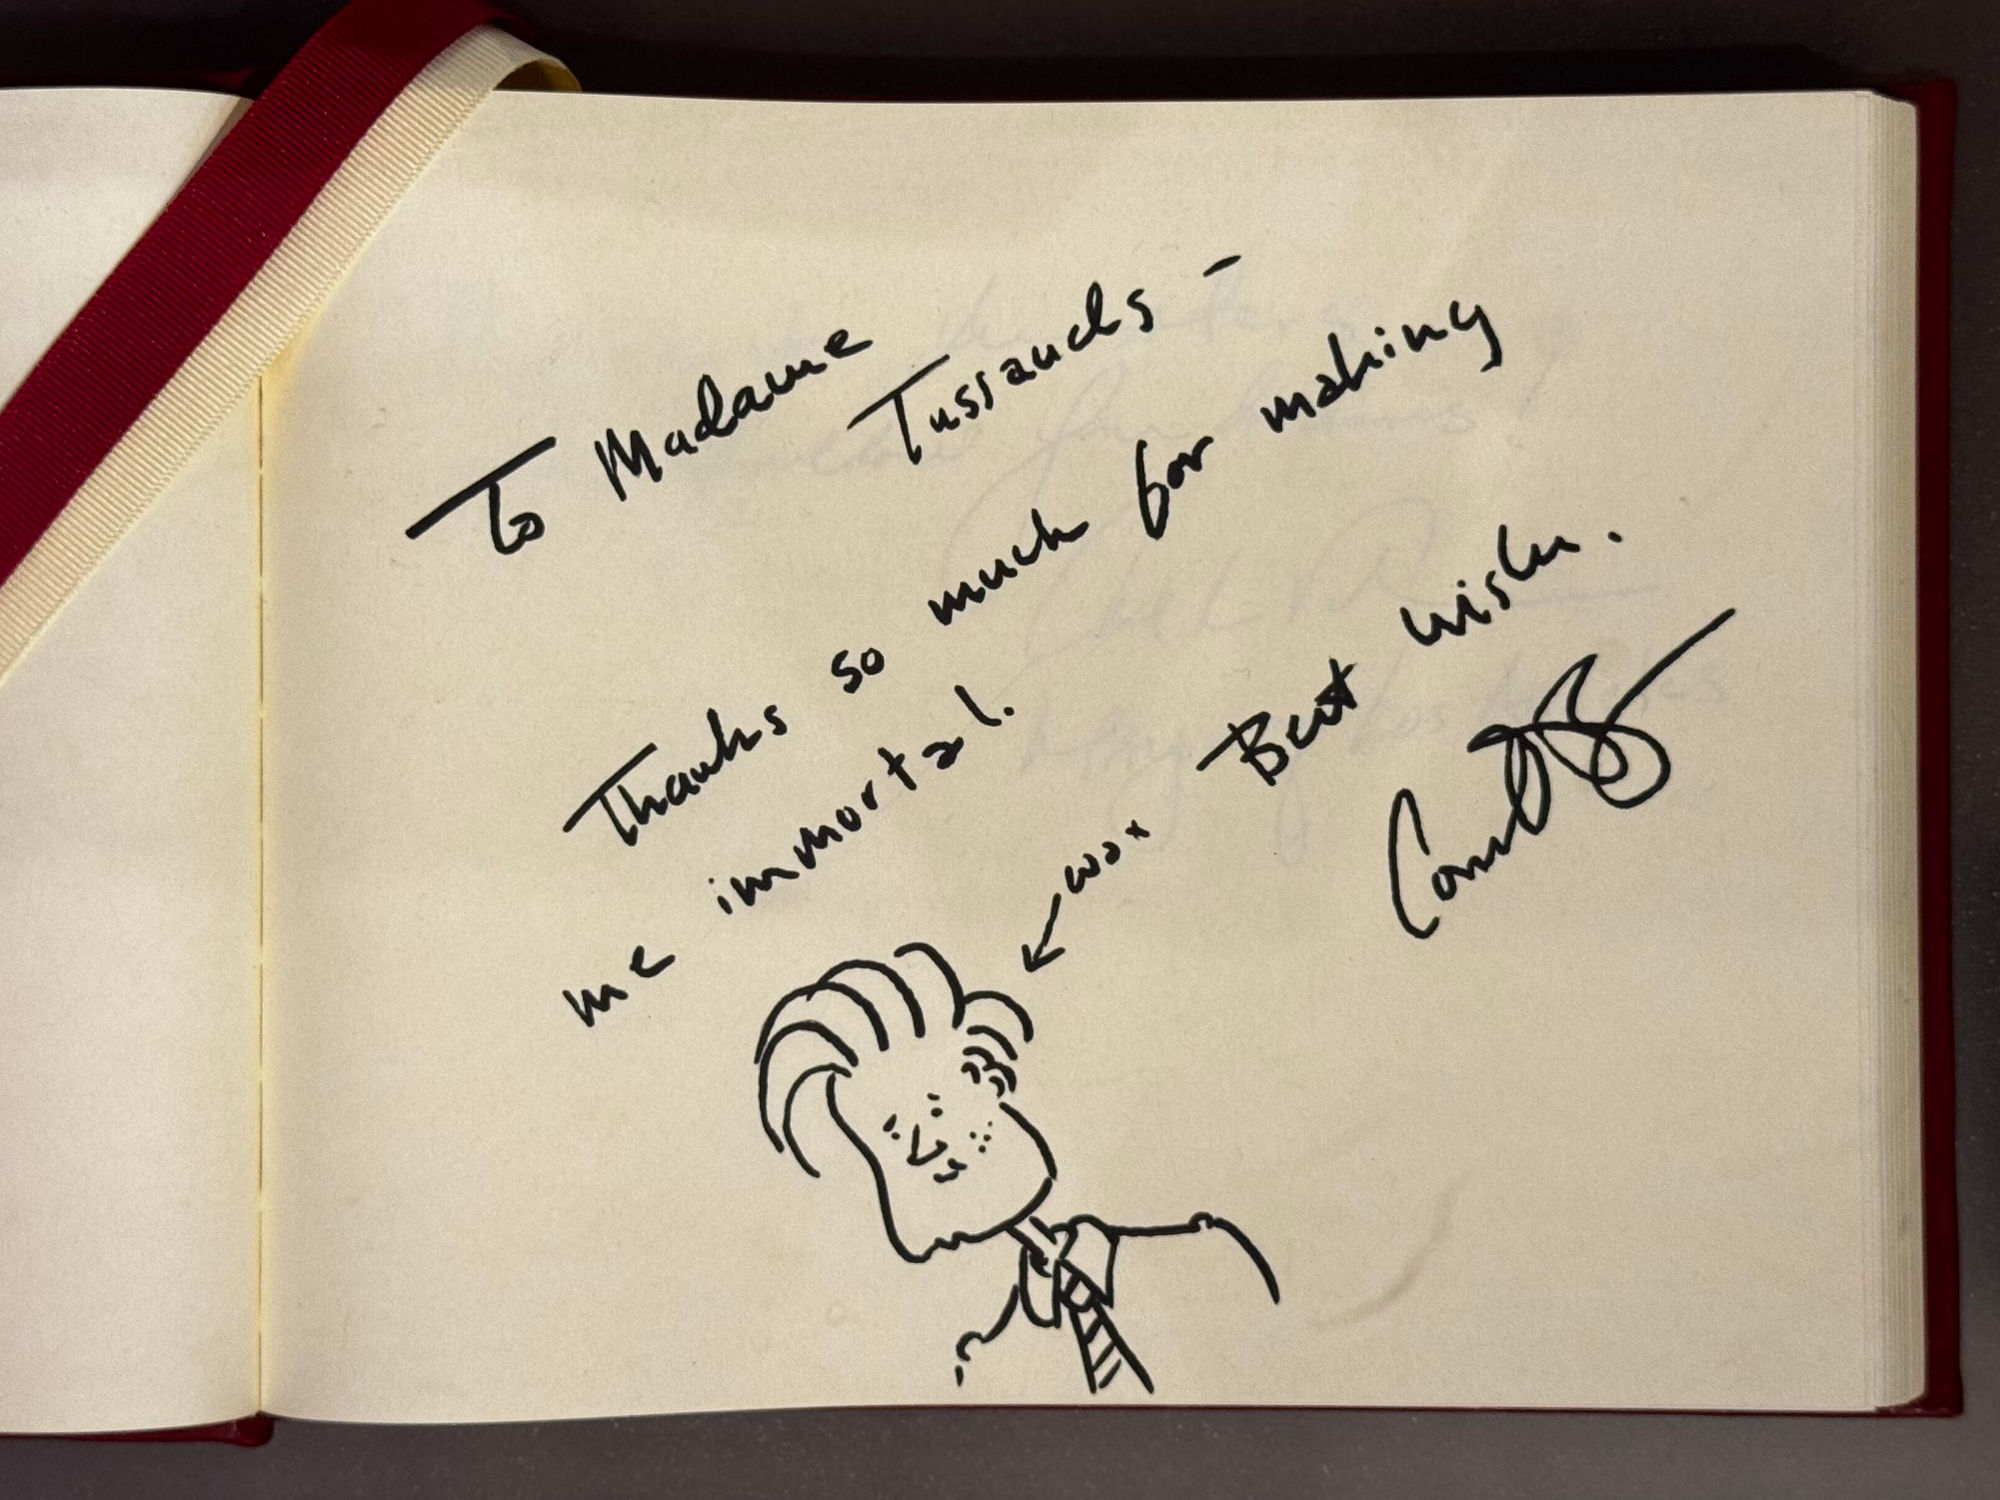 To Madame
Tussauds -
Thanks so much for making
me immortal.
Best wishes.
Conan
wax